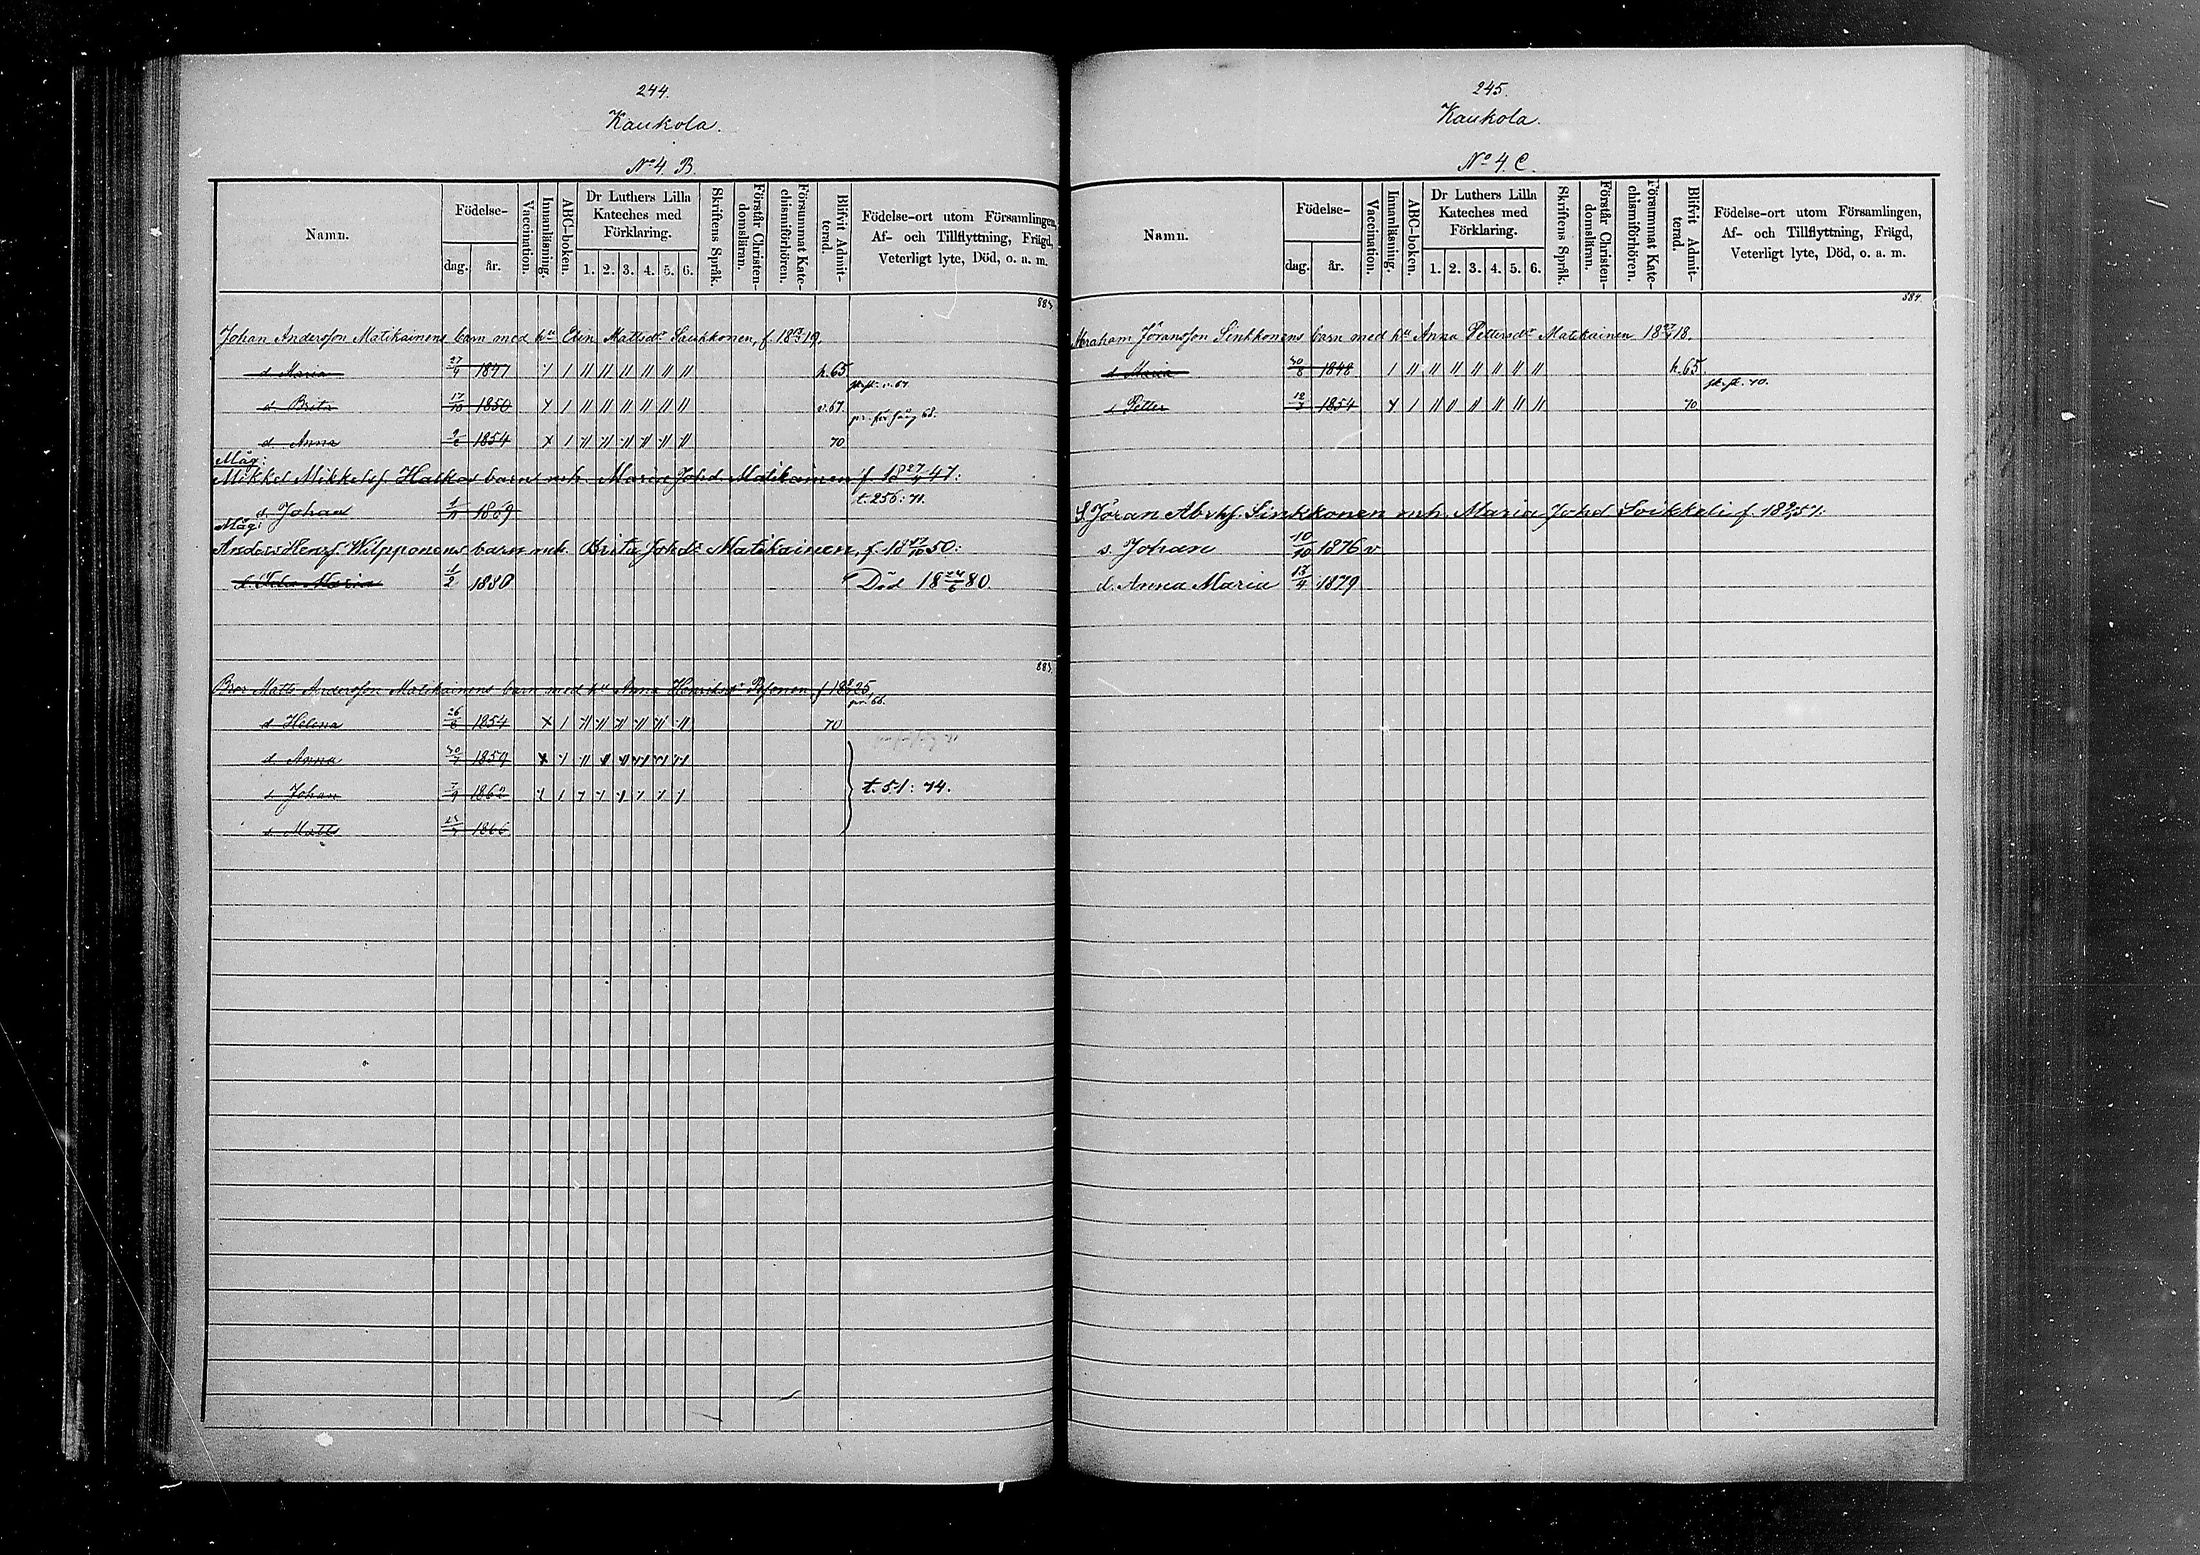 244.
Kaukola.
No 4. B.
Namn.
Födelse-
dag.
år.
Vaccination.
Innanläsning.
ABC-boken.
Dr Luthers Lilla
Kateches med
Förklaring.
1. 2. 3. 4. 5. 6.
Skriftens Språk.
Förstår Christen-
domsläran.
Försummat Kate-
chismiförhören.
Blifvit Admit-
terad.
Födelse-ort utom Församlingen,
Af- och Tillflyttning, Frägd,
Veterligt lyte, Död, o. a. m.
Johan Andersson Matikainens barn med hu Elin Mattsdr Saukkonen, f. 18 19.
d Maria 27/4 1847 h. 65
d Brita 17/10 1850 v. 67
d Anna 1854 70
Måg:
Mikkel Mikkelsf. Halkos barn mh. Maria Johd. Matikainen f. 18 27/4 47:
s. Johan 1869 t. 256: 71.
Måg:
Anders Henrs. Wilpponens barn mh. Brita Johdr Matikainen, f. 18 17/10 50:
d. Ida Maria 1/2 1880 Död 18 24/6 80.
Bror Matts Andersson Matikainens barn med hu Anna Henriksdr 25,
d Helena 26/8 1854 70
d. Anna 1859
s Johan 1862 t. 51: 74.
s. Matts 1866
245.
Kaukola.
No 4. C.
Namn.
Födelse-
dag.
år.
Vaccination.
Innanläsning.
ABC-boken.
Dr Luthers Lilla
Kateches med
Förklaring.
1. 2. 3. 4. 5. 6.
Skriftens Språk.
Förstår Christen-
domsläran.
Försummat Kate-
chismiförhören.
Blifvit Admit-
terad.
Födelse-ort utom Församlingen,
Af- och Tillflyttning, Frägd,
Veterligt lyte, Död, o. a. m.
Abraham Jöransson Sinkkonens barn med hu Anna Pettersdr Matikainen 18 18.
d Maria 30/8 1848 h. 65.
s Petter 12/3 1854 70
S. Jöran Abrhs. Sinkkonen mh. Maria Johd Soikkeli f.
s. Johan 10/10 1876 v
d. Anna Maria 1879